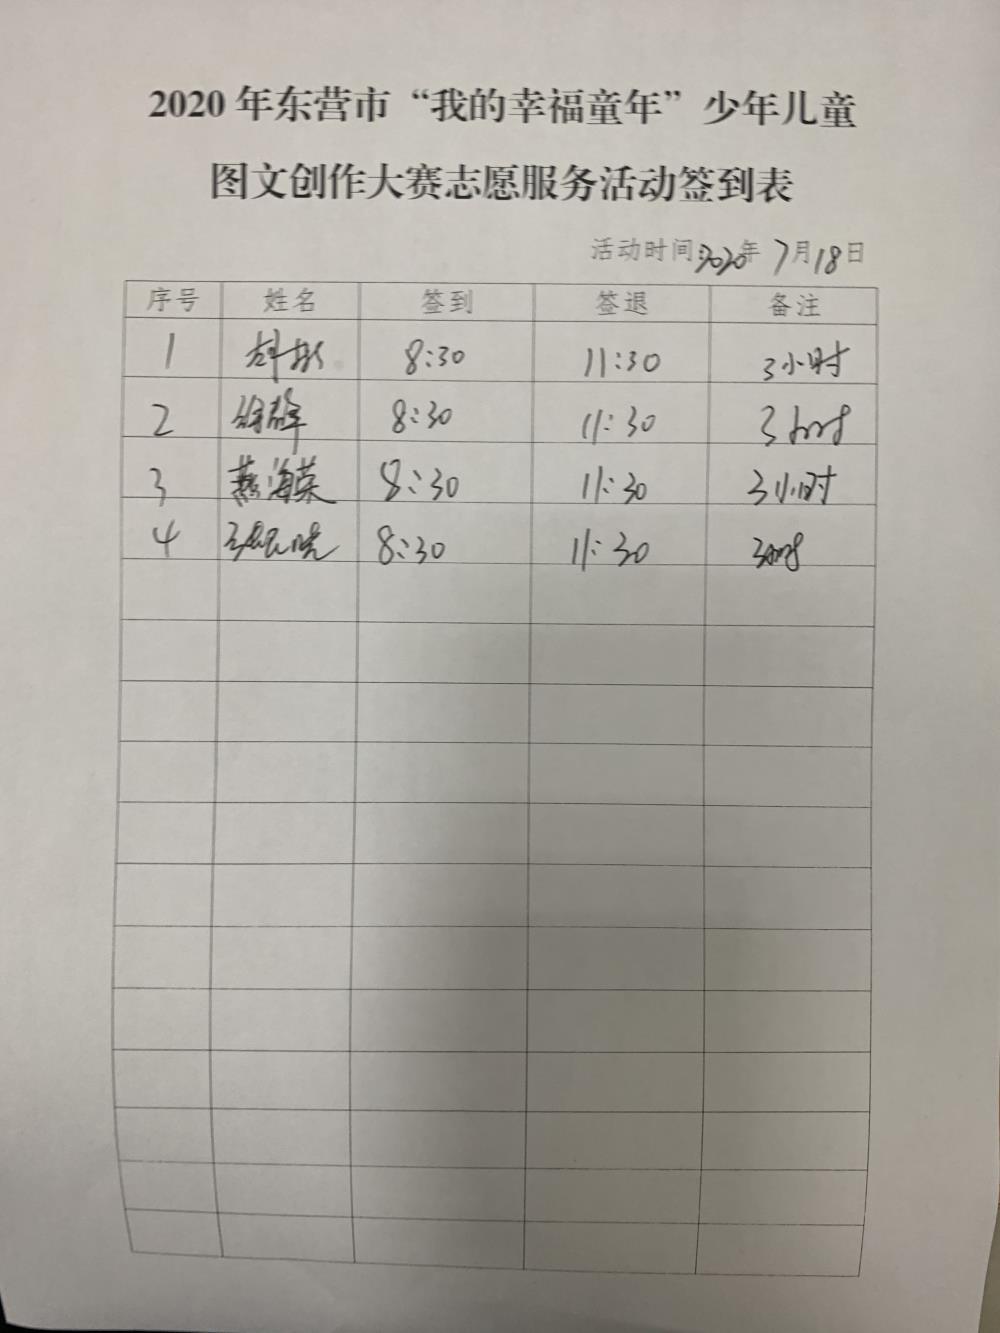 2020年东营市“我的幸福童年”少年儿童
图文创作大赛志愿服务活动签到表
活动时间:2020年7月18日
序号 姓名 签到 签退 备注
1 8:30 11:30 3小时
2 8:30 11:30 3小时
3 燕海荣 8:30 11:30 3小时
4 8:30 11:30 3小时